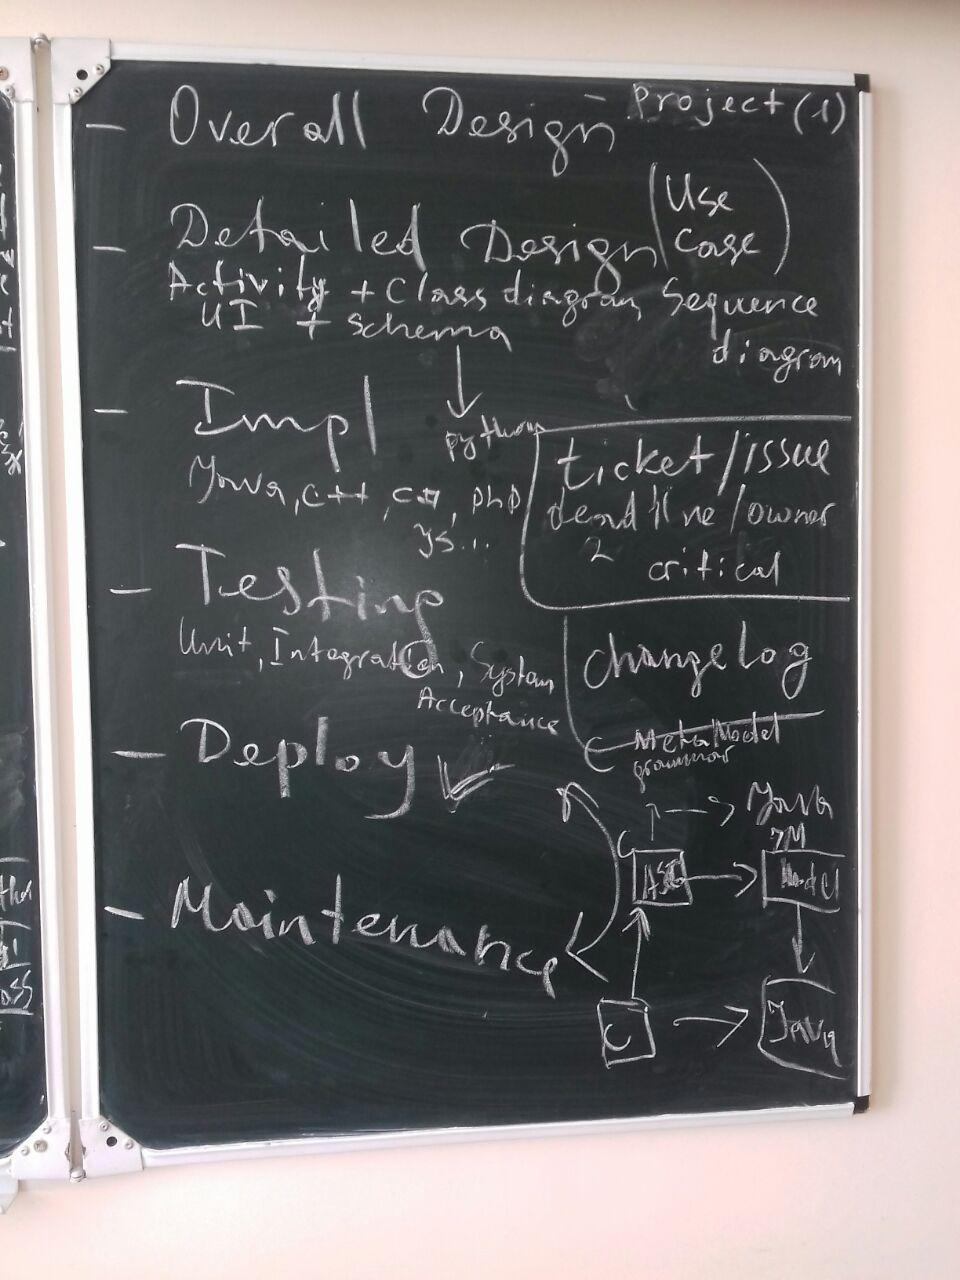 - Overall Design - Project (1)
- Detailed Design (Use Case)
Activity + Class diagram, Sequence diagram
UI + Schema
- Impl
python
Java, C++, C#, PhP
JS...
ticket/issue
deadline/owner
2
critical
- Testing
Unit, Integration, System
Acceptance
changelog
- Deploy
MetaModel
grammar
Java
- Maintenance
C
AST
Model
C
Java